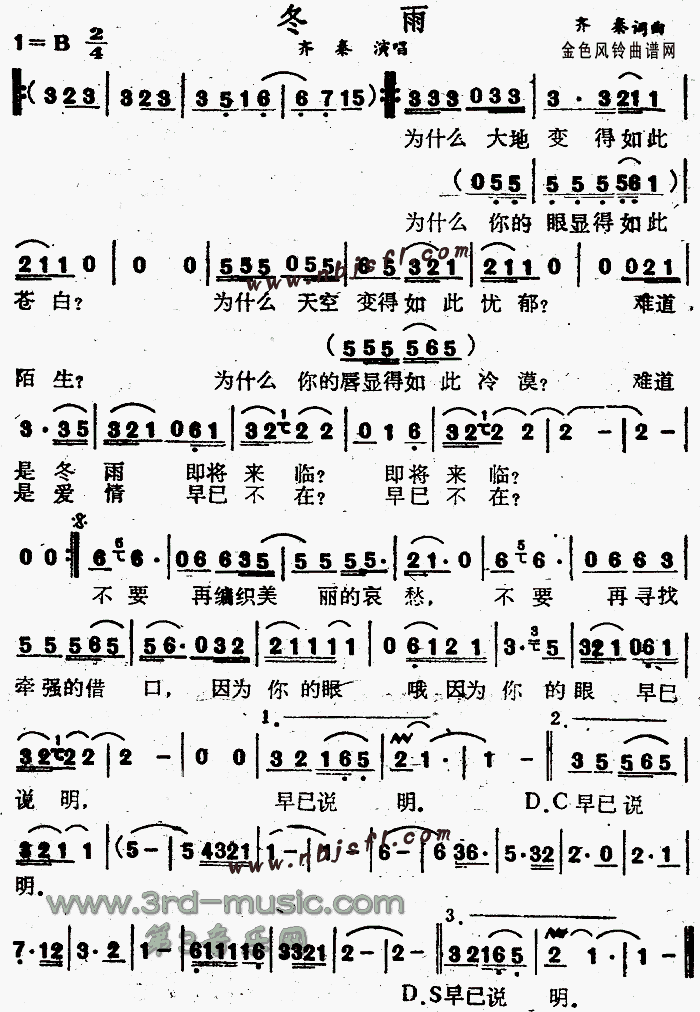 冬 雨
齐 秦词曲
1=B 2/4
齐 秦 演唱
金色风铃曲谱网
(323 | 323 | 3516 | 6 715) 333 033 | 3· 3211 |
为什么 大地 变 得如此
(055 | 55 5561)
为什么 你的 眼显得如此
2110 | 0 0 | 555 055 | 65 321 | 2110 | 0 021 |
www.nbjsfl.com
苍白? 为什么 天空 变得如此忧郁? 难道,
(555 565)
陌生? 为什么 你的唇显得如此冷漠? 难道
3·35 | 321 061 | 32 1 22 | 01 6 | 32 1 22 | 2 - | 2 - |
是冬雨 即将来临? 即将来临?
是爱情 早已不在? 早已不在?
0 0 6 6· | 06 635 | 5 55· | 21·0 | 6 5 6· | 06 63 |
不要 再编织美 丽的哀愁, 不要 再寻找
55 565 | 56·032 | 21111 | 06121 | 3· 3 5 | 321061 |
牵强的借 口, 因为你的眼 哦因为你的眼 早已
1. 2.
32 1 22 | 2 - | 0 0 | 32 165 | 2 1· | 1 - | 35 565 |
说明, 早已说 明. D.C早已说
321 1 | (5 - | 5 4321 | 1 - | 1 - | 6 - | 6 36· | 5·32 | 2·0 | 2·1 |
www.nbjsfl.com
明.
www.3rd-music.com
第3音乐网
3.
7·12 | 3·2 | 1 - | 611116 | 3321 | 2 - | 2 - | 32165 | 2 1· | 1 - |
D.S早已说 明.